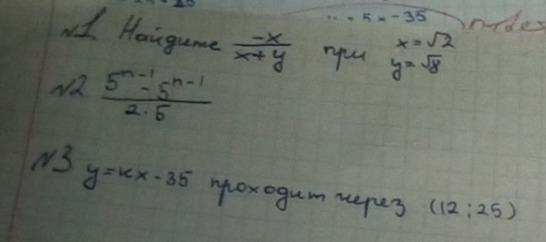 .. = 5 x = -35
№1. Найдите -x/(x+y) при x=√2 y=√8
№2 (5^(n-1) - 5^(n-1))/(2·5)
№3 y=кx-35 проходит через (12;25)